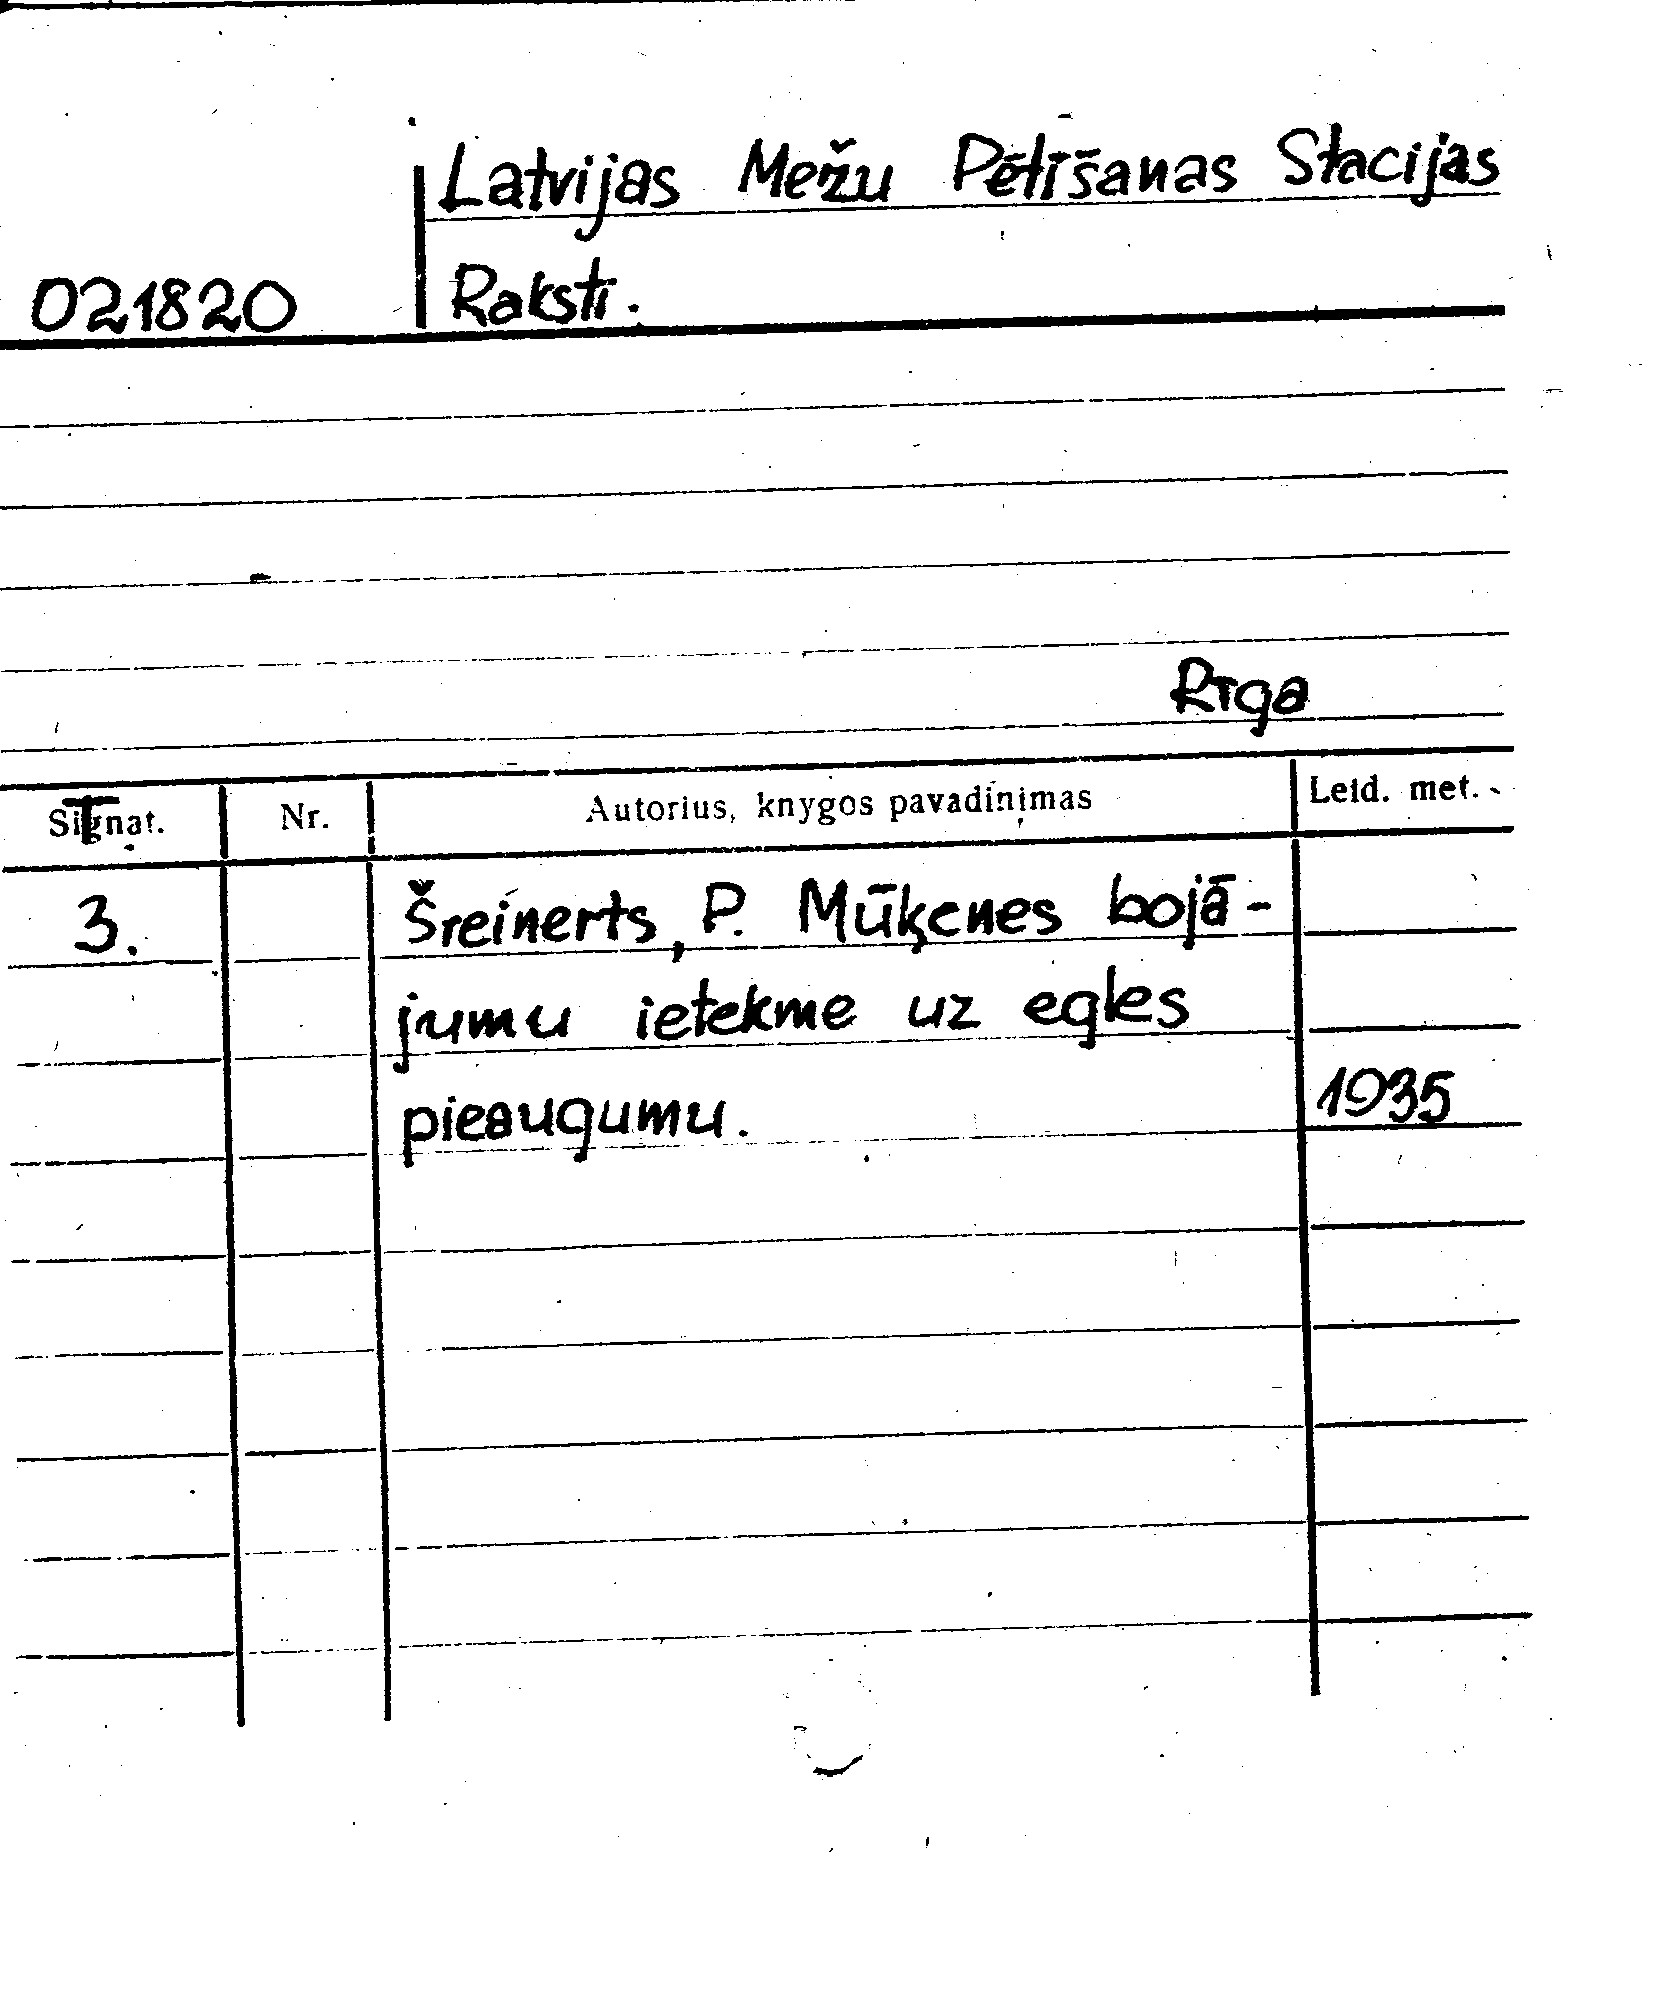 Latvijas Mežu Pētīšanas Stacijas
021820 Raksti.
Rīga
Signat. T. Nr. Autorius, knygos pavadinimas Leid. met.
3. Šreinerts, P. Mūķenes bojā-
jumu ietekme uz egles
pieaugumu. 1935